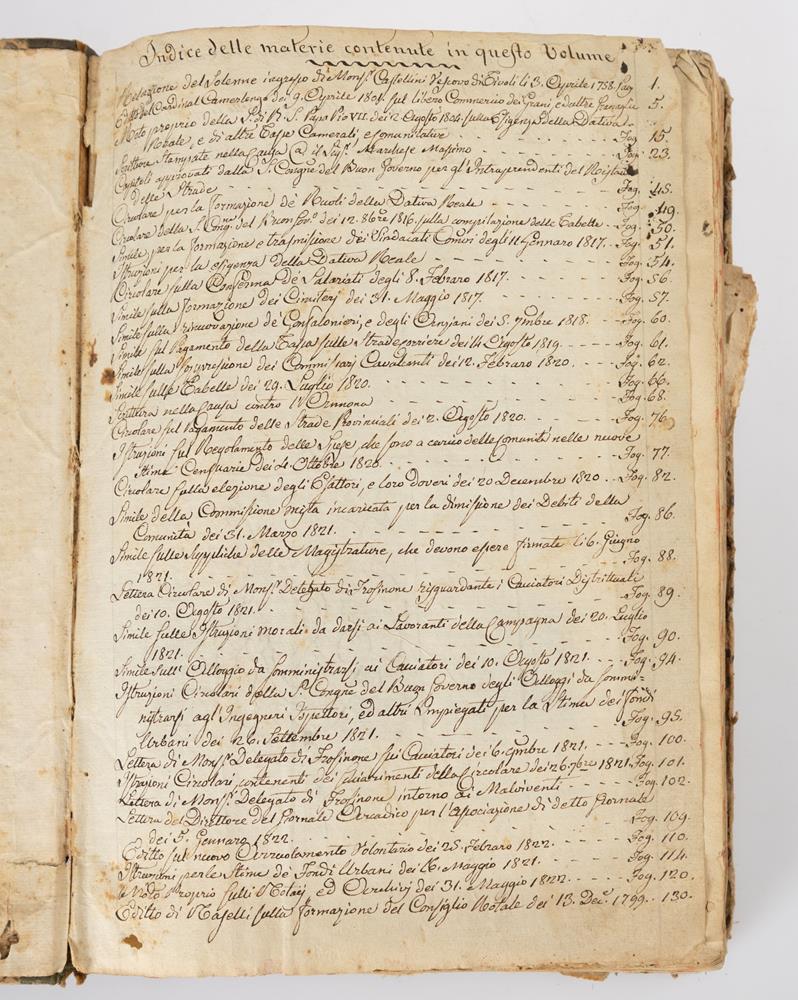 Indice delle materie contenute in questo Volume
Relazione del Solenne ingresso di Monsr. Castellini Vescovo di Tivoli li 3. Aprile 1758. Pag 1.
Editto del Cardinal Camerlengo dei 9. Aprile 1801. sul libero Commercio dei Grani, ed altre Granaglie 5.
Moto proprio della S. di N. S. Papa Pio VII. dei 2. Agosto 1801. sulla Esigenza della Dativa
Reale, e di altre Tasse Camerali, e Comunitative Fog. 15.
Scritture Stampate nella Causa @ il Sigr. Marchese Massimo Fog. 23.
Capitoli approvati dalla S. Congne. del Buon Governo per gl'Intraprendenti dei
delle Strade Fog. 45.
Circolare per la formazione de Ruoli della Dativa Reale Fog. 49.
Circolare della S. Congne. del Buon Govo. dei 12. 8bre. 1816. sulla compilazione delle Tabelle Fog. 50.
Simile per la formazione e trasmissione dei Sindacati Comun. degli 11. Gennaro 1817. Fog. 51.
Istruzioni per la esigenza della Dativa Reale Fog. 54.
Circolare sulla Conferma de Salariati degli 8. Febraro 1817. Fog. 56.
Simile sulla formazione dei Cimiterj dei 31. Maggio 1817. Fog. 57.
Simile sulla rinnovazione de Gonfalonieri, e degli Anziani dei 5. 7mbre 1818. Fog. 60.
Simile sul Pagamento della Tassa sulle Strade corriere dei 14. Agosto 1819. Fog. 61.
Simile sulla soppressione dei Commissarj Cavalcanti dei 12. Febraro 1820. Fog. 62.
Simile sulle Tabelle dei 29. Luglio 1820. Fog. 66.
Scrittura nella Causa contro l'Annona Fog. 68.
Circolare sul Pagamento delle Strade Provinciali dei 2. Agosto 1820. Fog. 76.
Istruzioni sul Regolamento delle Spese, che sono a carico delle Comunità nelle nuove
Stime Censuarie dei 4. Ottobre 1820. Fog. 77.
Circolare sulla elezione degli Esattori, e loro doveri dei 20. Decembre 1820. Fog. 82.
Simile della Commissione mista incaricata per la dimissione dei Debiti delle
Comunità dei 31. Marzo 1821. Fog. 86.
Simile sulle Suppliche delle Magistrature, che devono essere firmate li 6. Giugno
1821. Fog. 88.
Lettera Circolare di Monsr. Delegato di Frosinone risguardante i Cacciatori Distrettuali
dei 10. Agosto 1821. Fog. 89.
Simile sulle Istruzioni morali da darsi ai Lavoranti della Campagna dei 20. Luglio
1821. Fog. 90.
Simile sull' Alloggio da somministrarsi ai Cacciatori dei 10. Agosto 1821. Fog. 94.
Istruzioni Circolari della S. Congne. del Buon Governo degli Alloggi da sommi-
nistrarsi agl'Ingegneri Ispettori, ed altri Impiegati per la Stima dei fondi
Urbani dei 26. Settembre 1821. Fog. 95.
Lettera di Monsr. Delegato di Frosinone sui Cacciatori dei 6. 1821. Fog. 100.
Istruzioni Circolari contenenti dei schiarimenti della Circolare dei 26. 7bre 1821. Fog. 101.
Lettera di Monsr. Delegato di Frosinone intorno ai Malviventi Fog. 102.
Lettera del Direttore del Giornale Arcadico per l'Associazione di detto Giornale
dei 5. Gennaro 1822. Fog. 109.
Editto sul nuovo Arruolamento Volontario dei 25. Febraro 1822. Fog. 110.
Istruzioni per le Stime de Fondi Urbani dei 16. Maggio 1821. Fog. 114.
Moto Proprio sulli Notarj ed Archivj dei 31. Maggio 1822. Fog. 120.
Editto di Naselli sulla formazione del Consiglio Notale dei 13. Dece. 1799. 130.